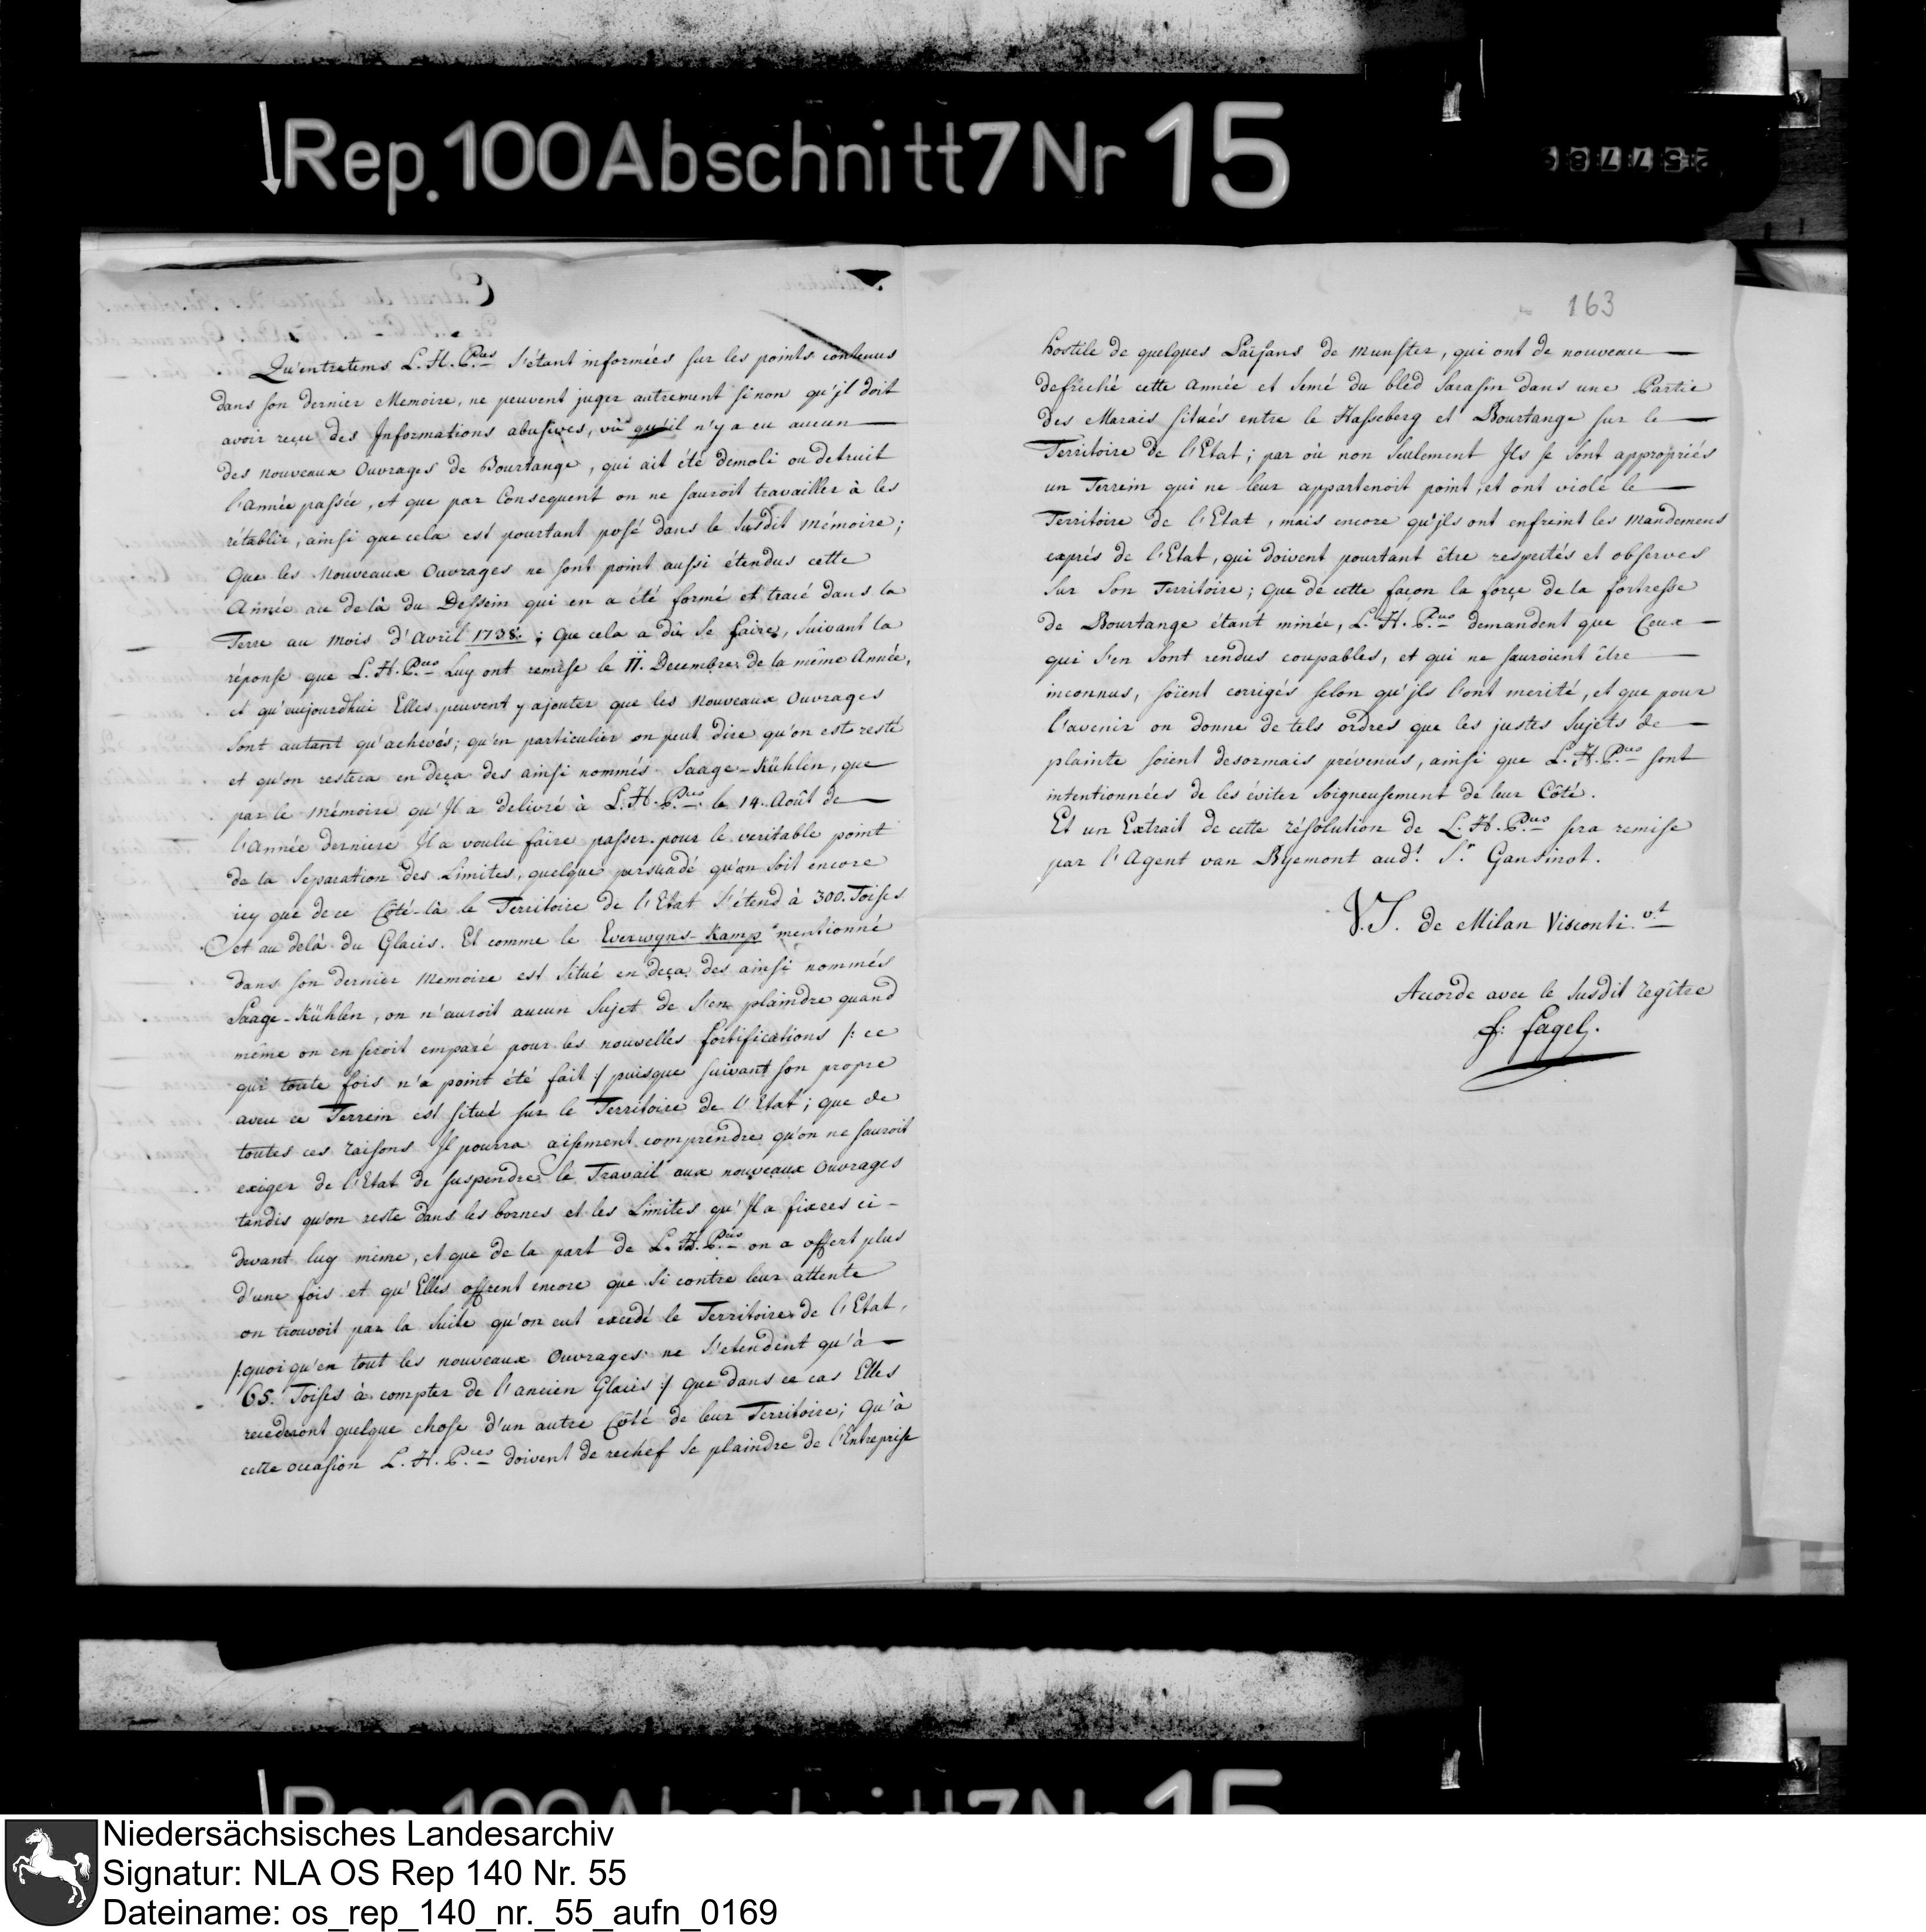 Rep. 100 Abschnitt 7 Nr 15
Qu'entretems L. H. P.ces s'étant informées sur les points contenus
dans son dernier Memoire, ne peuvent juger autrement sinon qu'jl doit
avoir reçu des Jnformations abusives, vû qu'il n'y a eu aucun
des nouveaux Ouvrages de Bourtange, qui ait été demoli ou detruit
l'année passée, et que par Consequent on ne sauroit travailler à les
rétablir, ainsi que cela est pourtant posé dans le susdit mémoire;
Que les nouveaux Ouvrages ne sont point aussi étendus cette
Année au delà du Dessein qui en a été formé et tracé dans la
Terre au mois d'Avril 1738.; Que cela a dû se faire, suivant la
réponse que L. H. P.ces Luy ont remise le 11. Decembre de la même Année,
et qu'aujourdhui Elles peuvent y ajouter que les Nouveaux Ouvrages
sont autant qu'achevés; qu'en particulier on peut dire qu'on est resté
et qu'on restera en deça des ainsi nommés Saage-Kühlen, que
par le mémoire qu'Jl a delivré à L. H. P.ces le 14. Août de
l'Année derniere Jl a voulu faire passer pour le veritable point
de la Separation des Limites, quelque persuadé qu'on soit encore
icy que de ce Côté-là le Territoire de l'Etat s'étend à 300. Toises
et au delà du Glacis. Et comme le Everwyns-Kamp mentionné
dans son dernier Memoire est situé en deça des ainsi nommés
Saage-Kühlen, on n'auroit aucun Sujet de s'en plaindre quand
même on en seroit emparé pour les nouvelles fortifications /: ce
qui toute fois n'a point été fait :/ puisque suivant son propre
aveu ce Terrein est situé sur le Territoire de l'Etat; que de
toutes ces raisons Jl pourra aisement comprendre qu'on ne sauroit
exiger de l'Etat de suspendre le Travail aux nouveaux Ouvrages
tandis qu'on reste dans les bornes et les Limites qu'Jl a fixées ci-
devant luy même, et que de la part de L. H. P.ces on a offert plus
d'une fois et qu'Elles offrent encore que si contre leur attente
on trouvoit par la Suite qu'on eut excedé le Territoire de l'Etat,
/: quoi qu'en tout les nouveaux Ouvrages ne s'etendent qu'à
65. Toises à compter de l'ancien Glacis :/ que dans ce cas Elles
recederont quelque chose d'un autre Côté de leur Territoire; Qu'à
cette occasion L. H. P.ces doivent de rechef se plaindre de l'Entreprise
163
hostile de quelques Païsans de Munster, qui ont de nouveau
defriché cette Année et semé du bled Sarasin dans une Partie
des Marais situés entre le Hasseberg et Bourtange sur le
Territoire de l'Etat; par où non seulement Jls se sont appropriés
un Terrein qui ne leur appartenoit point, et ont violé le
Territoire de l'Etat, mais encore qu'jls ont enfreint les Mandemens
exprés de l'Etat, qui doivent pourtant être respectés et observes
sur Son Territoire; Que de cette façon la force de la fortresse
de Bourtange étant minée, L. H. P.ces demandent que Ceux
qui s'en sont rendus coupables, et qui ne sauroient être
inconnus, soïent corrigés selon qu'jls l'ont merité, et que pour
l'avenir on donne de tels ordres que les justes Sujets de
plainte soïent desormais prévenus, ainsi que L. H. P.ces sont
intentionnées de les éviter soigneusement de leur Côté.
Et un Extrait de cette résolution de L. H. P.ces sera remise
par l'Agent van Byemont aud.t S.r Gansinot.
V. J. de Milan Visconti. v.t
Accorde avec le susdit regître
f: fagel.
Niedersächsisches Landesarchiv
Signatur: NLA OS Rep 140 Nr. 55
Dateiname: os_rep_140_nr._55_aufn_0169